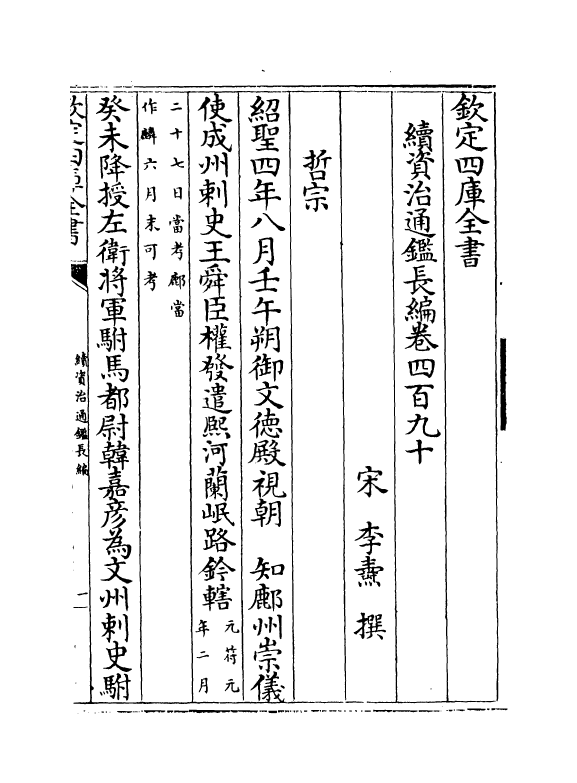 欽定四庫全書
續資治通鑑長編卷四百九十
宋 李燾 撰
哲宗
紹聖四年八月壬午朔御文徳殿視朝 知鄜州崇儀
使成州刺史王舜臣權發遣熙河蘭岷路鈐轄
元符元
年二月
二十七日當考鄜當
作麟六月末可考
癸未降授左衛將軍駙馬都尉韓嘉彦為文州刺史駙
欽定四庫全書
續資治通鑑長編
一